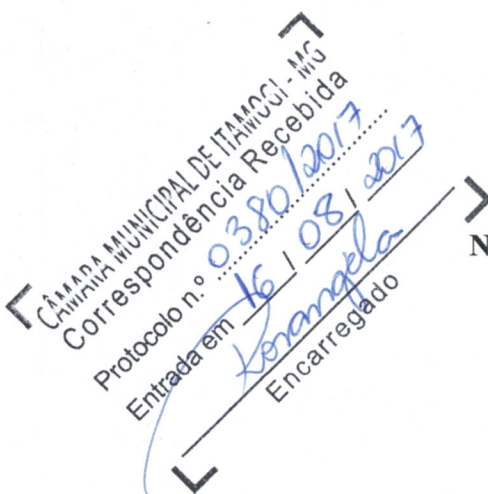 CÂMARA MUNICIPAL DE ITAMOGI - MG
Correspondência Recebida
Protocolo n.º 0380/2017
Entrada em 16 / 08 / 2017
Encarregado
N